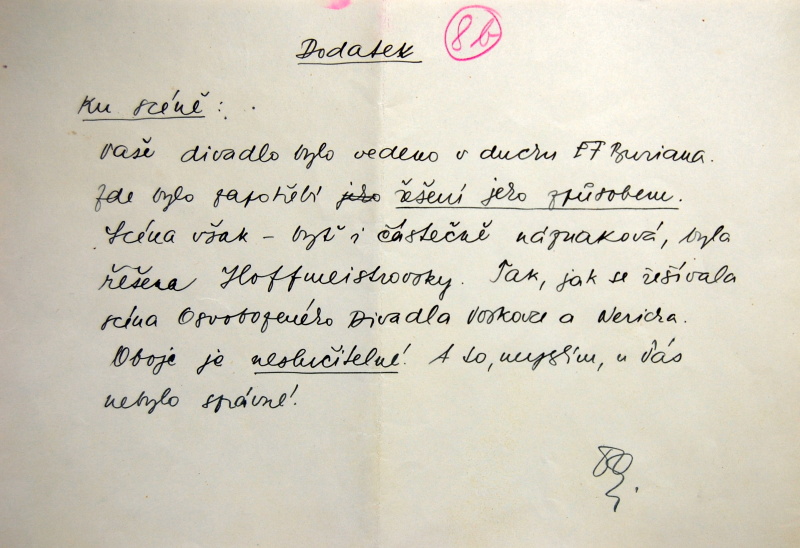 Dodatek 8b
Ku scéně:
Vaše divadlo bylo vedeno v duchu EF Buriana.
Zde bylo zapotřebí jeho řešení jeho způsobem.
Scéna však - byť i částečně náznaková, byla
řešena Hoffmeistrovsky. Tak, jak se řešívala
scéna Osvobozeného Divadla Voskovce a Wericha.
Oboje je neslučitelné! A to, myslím, u Vás
nebylo správné!